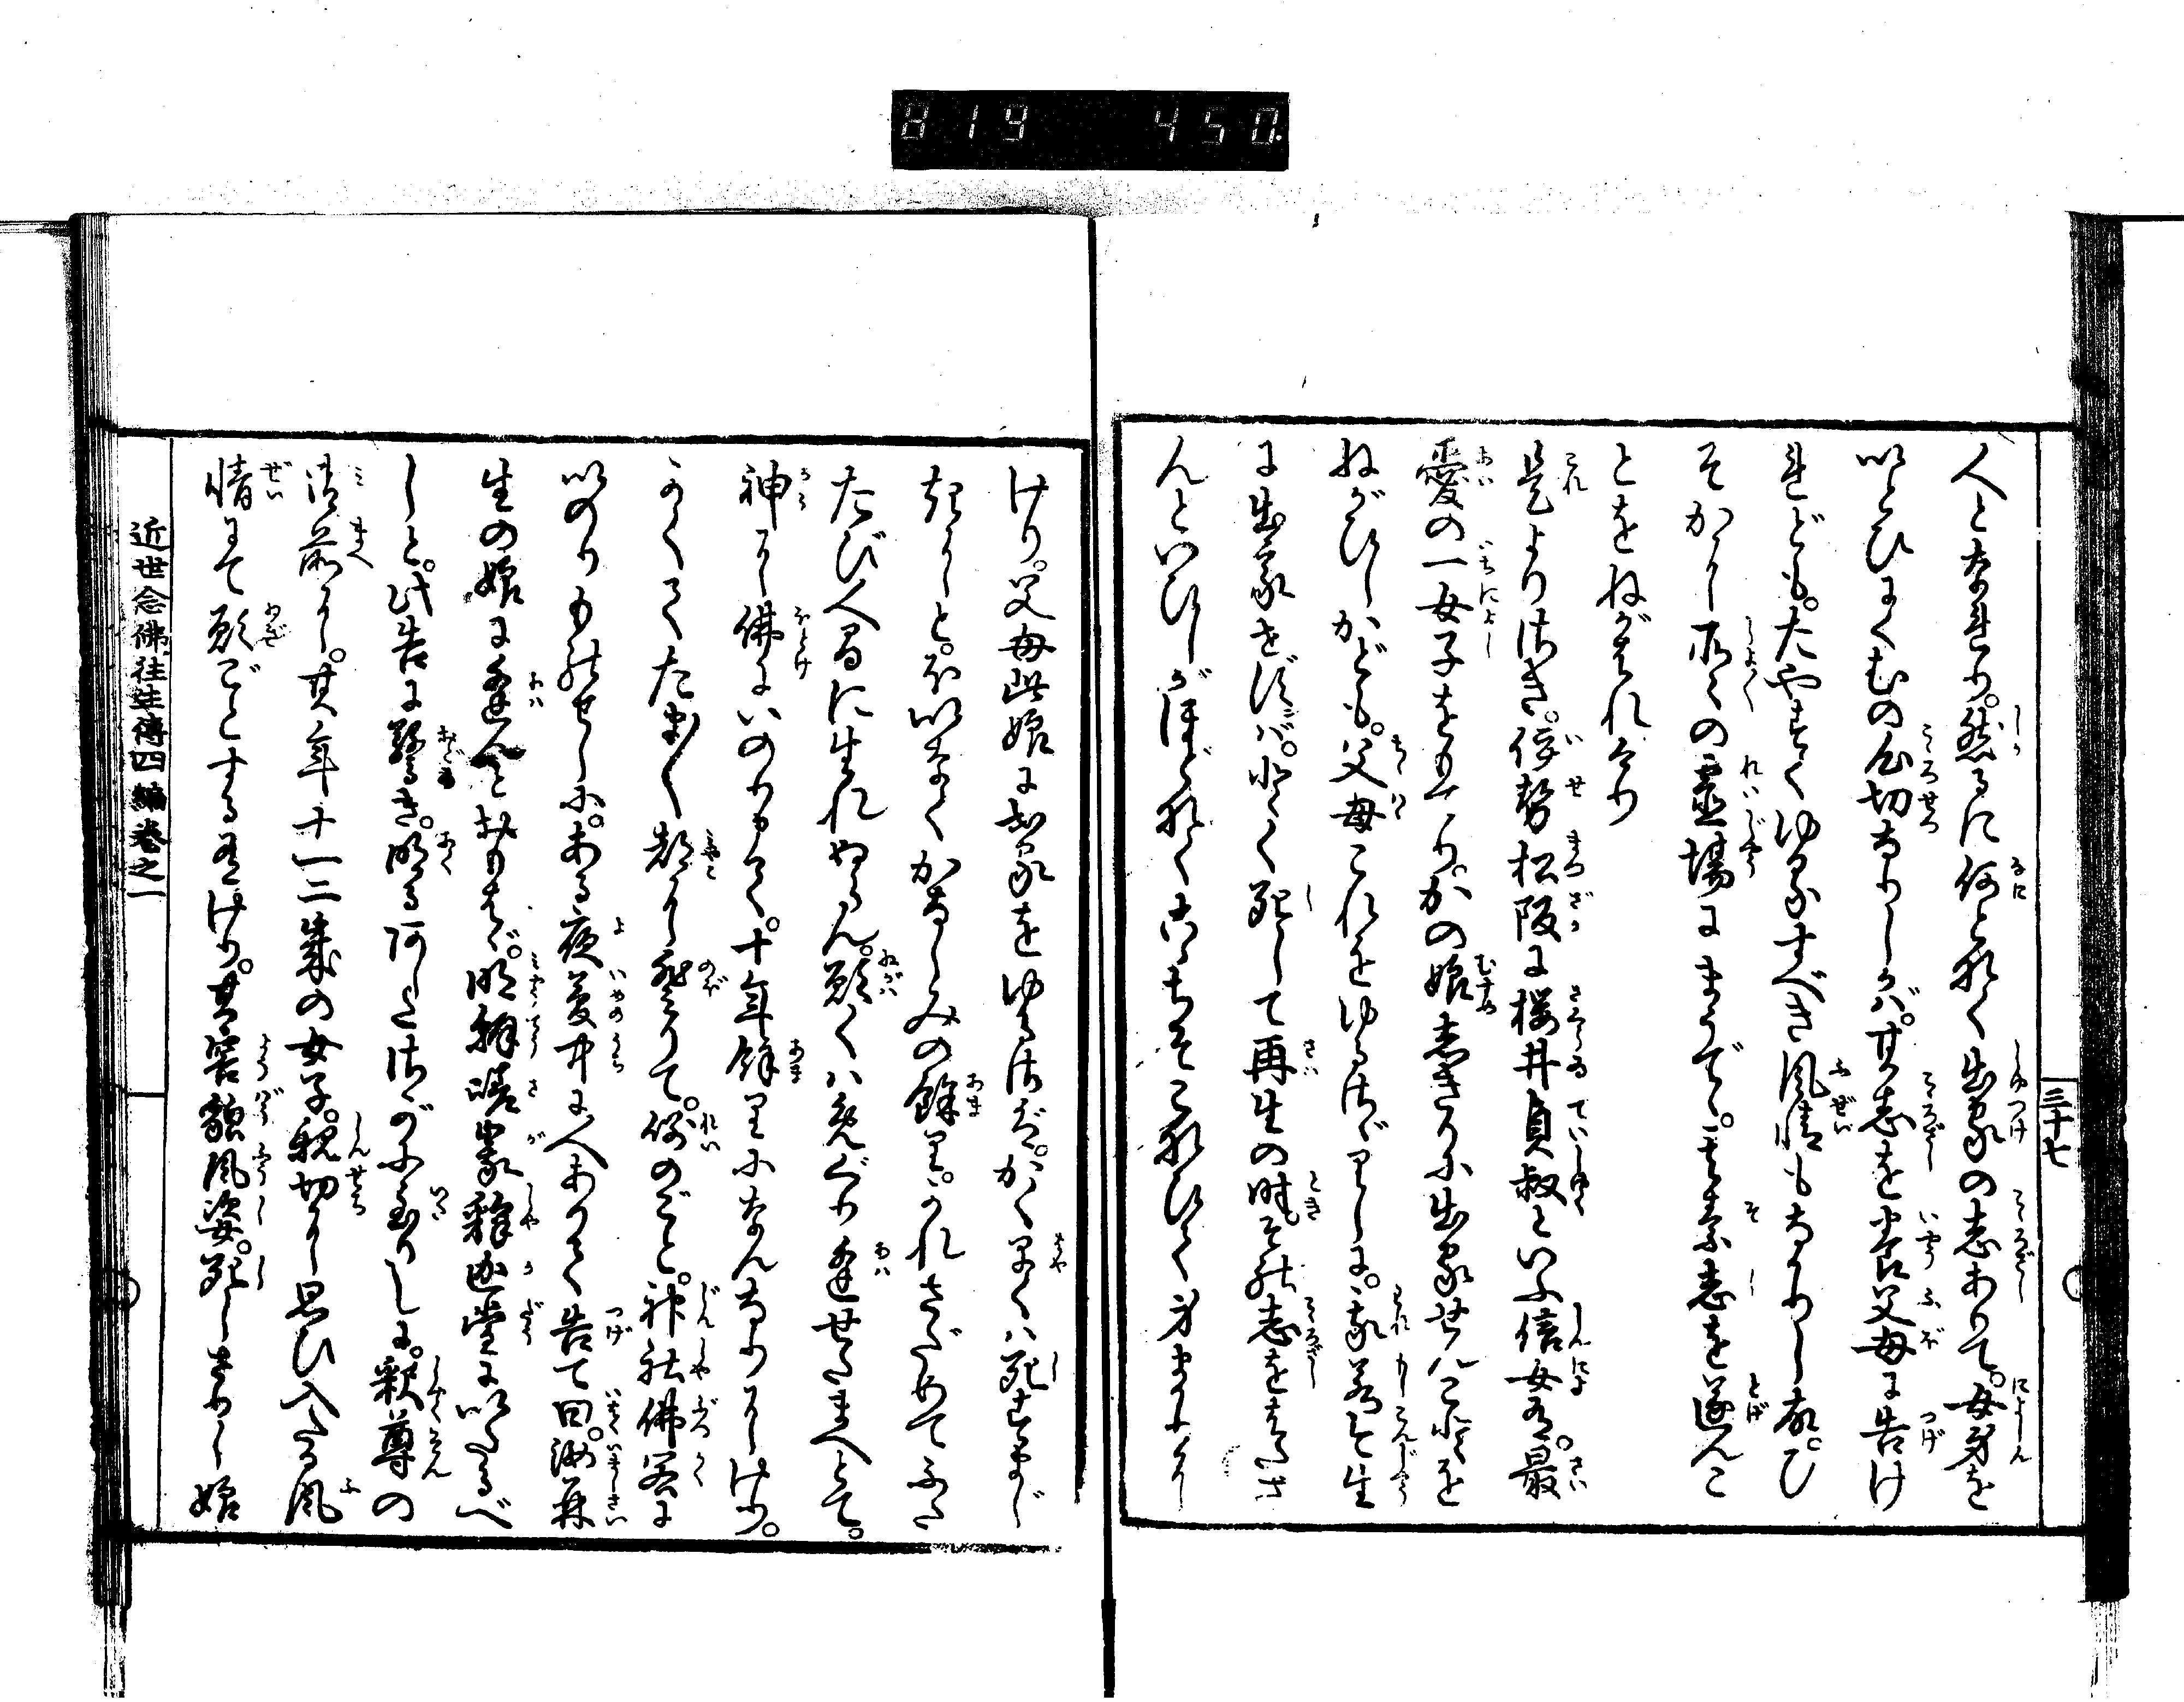 819 450
三十七
人となれり。然るに何となく出家の志ありて。女身を
いとひにくむの心切なりしかば。其志を常父母に告け
れども。たやすくゆるすべき風情もなかりし故。ひ
そかに所々の霊場にまうで。其素志を遂んこ
とをねがはれけり
是よりさき。伊勢松阪に櫻井貞叔といふ信女有。最
愛の一女子をもてり。かの娘しきりに出家せんことを
ねがひしかども。父母これをゆるさゞりしに。我若今生
に出家せずば。とく死して再生の時。その志をはたさ
んといひしがほどなく古ゝちそこなひて身まかりに
けり。父母此娘に出家をゆるさば。かく早くハ死すまじ
きにと。かひなくかなしみの餘り。かれさだめてふた
たび人間に生れぬらん。願くハめぐり逢せたまへとて。
神に佛にいのりもて。十年餘りになんなりにけり。
かくてたま〳〵都に登りて。例のごと。神社佛閣に
いのりものせしに。ある夜夢中に人ありて告て曰。汝再
生の娘に逢んとおもはゞ。明朝嵯峨釋迦堂にいたるべ
しと。此告に驚き。明るあしたさがに至りしに。釈尊の
御前に。其年十一二歳の女子。親切に思ひ入たる風
情にて願ごとする有けり。其容貌風姿。死しさりし娘
近世念佛往生傳四編巻之一